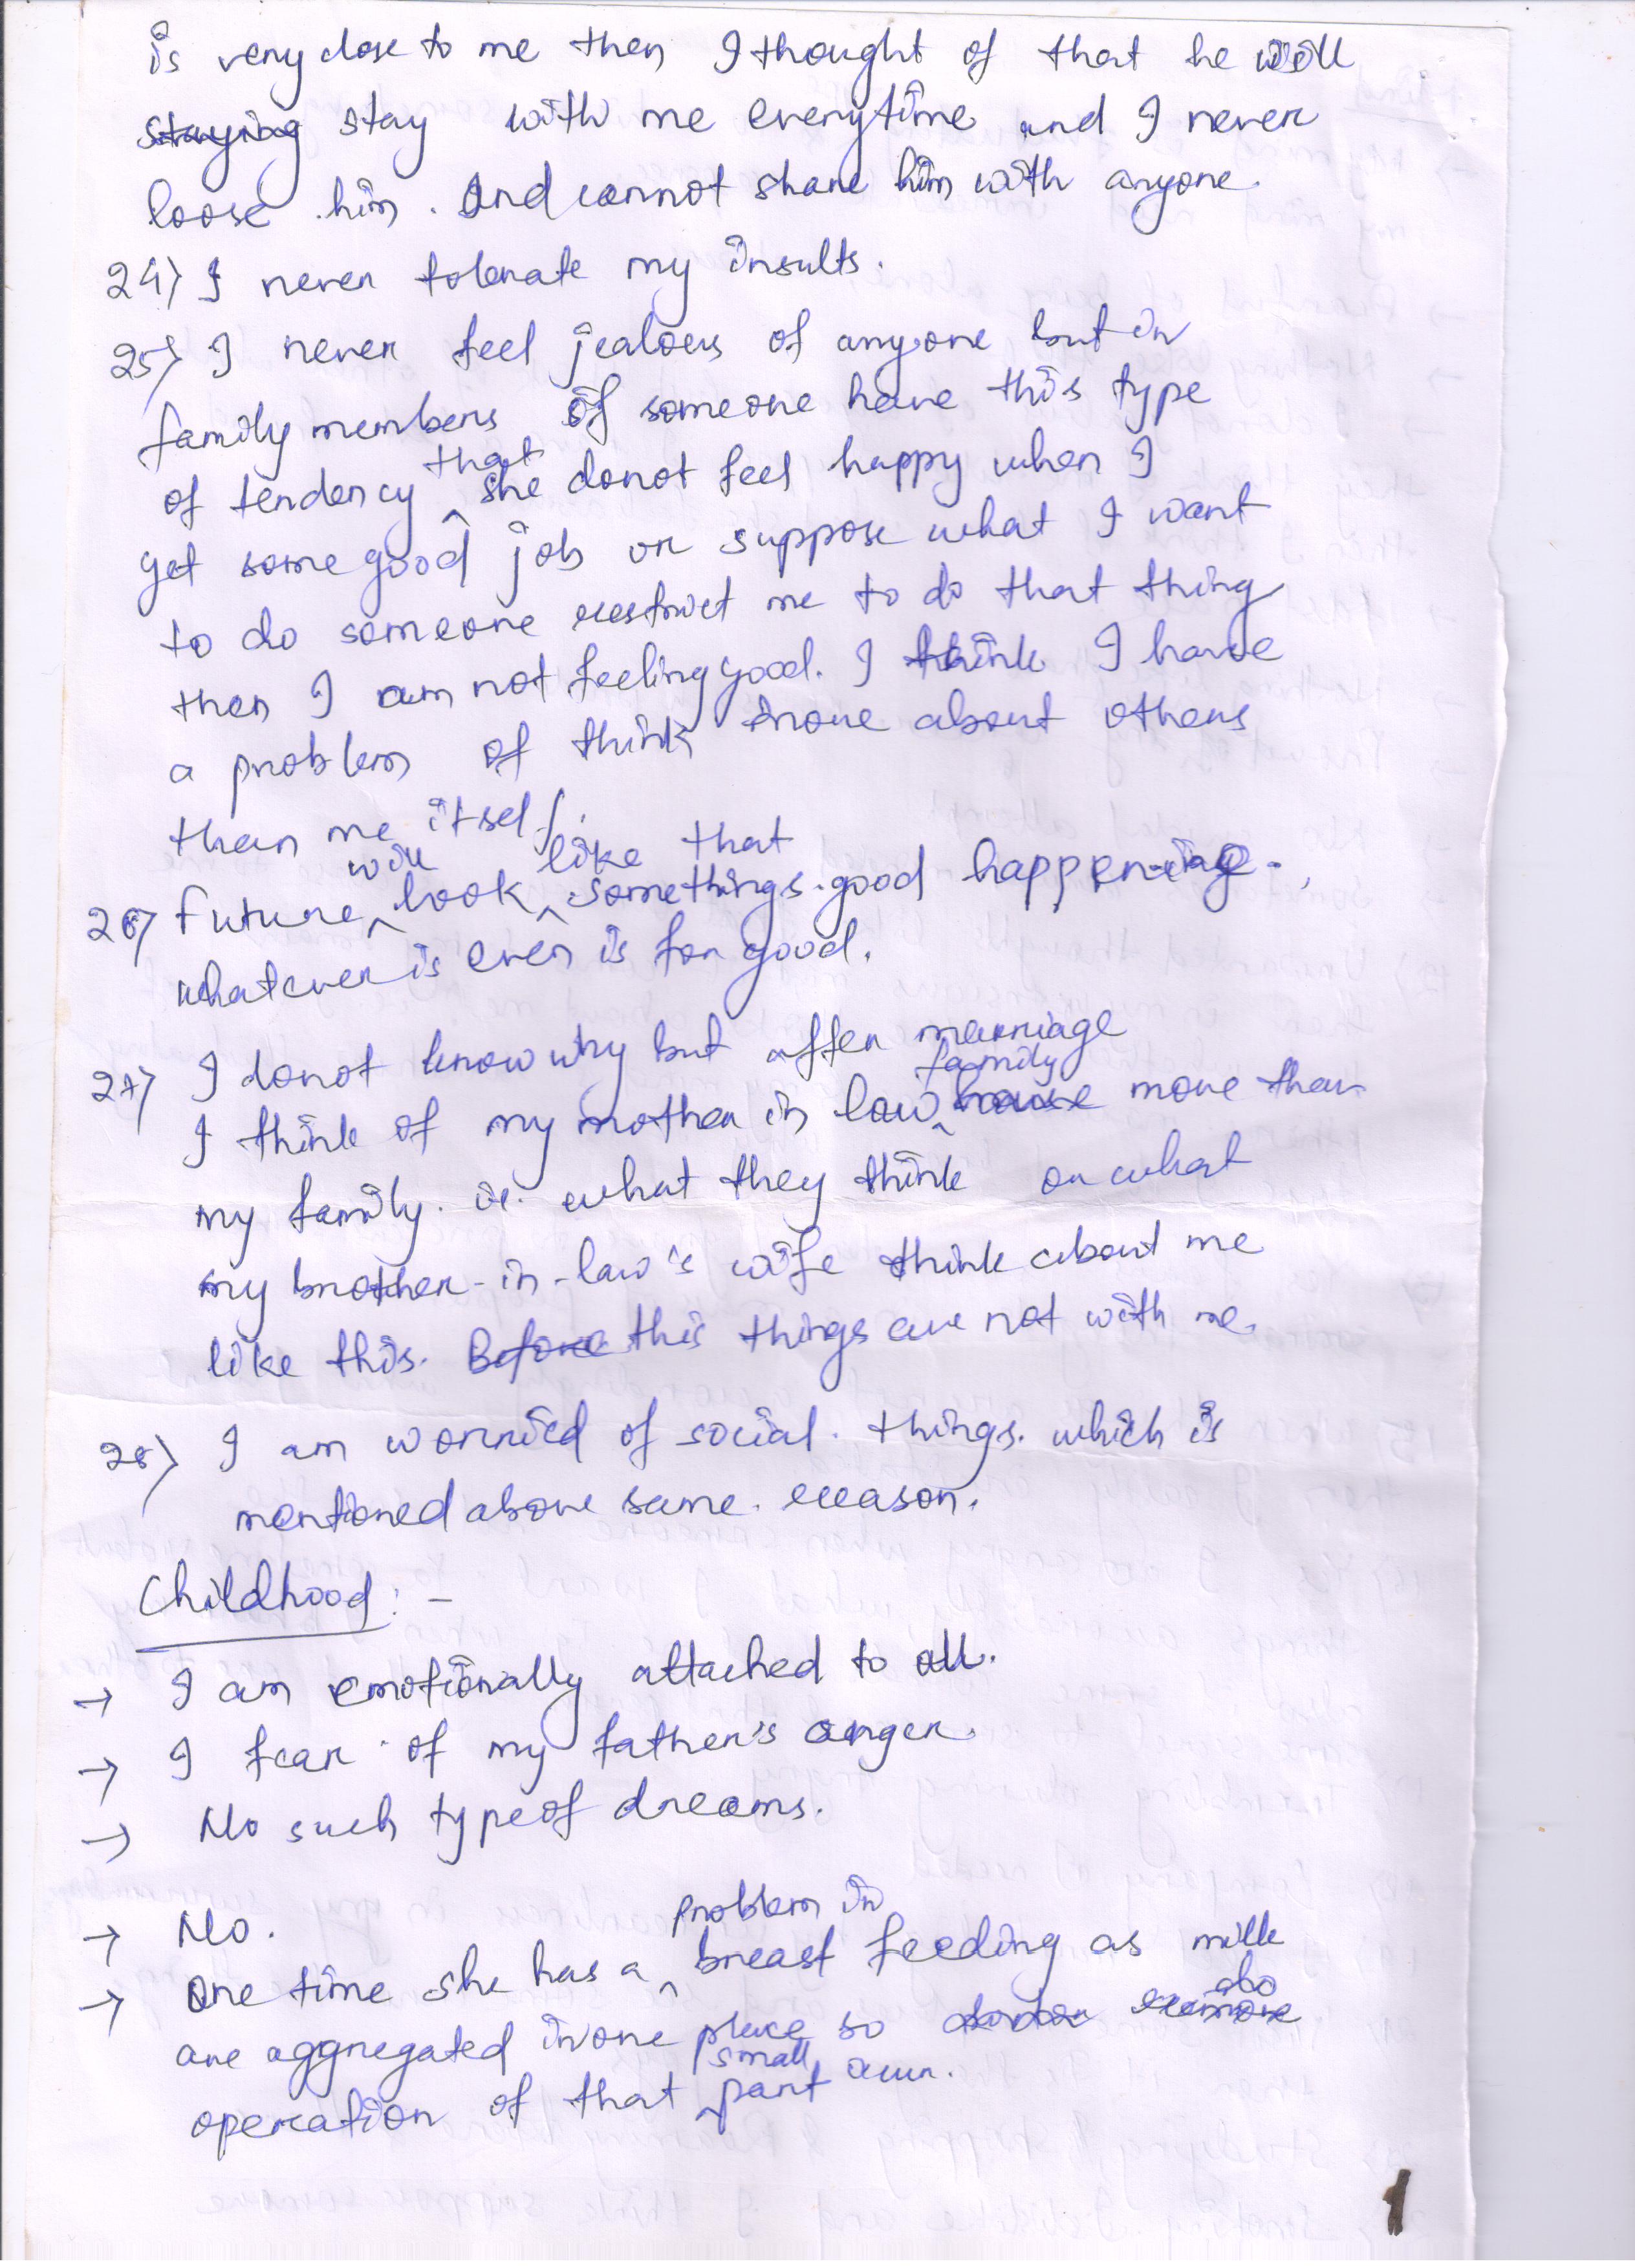 is very close to me then I thought of that he will
staying stay with me everytime and I never
loose him. And cannot share him with anyone.
24) I never tolerate my insults.
25) I never feel jealous of anyone but in
family members if someone have this type
of tendency that she donot feel happy when I
get some good job or suppose what I want
to do someone restrict me to do that thing
then I am not feeling good. I think I have
a problem of think more about others
than me itself.
26) Future will look like that somethings good happening.,
whatever is ever is for good.
27) I donot know why but after marriage
I think of my mother in law family house more than
my family. ie. what they think or what
my brother-in-law's wife think about me
like this. Before this things are not with me.
28) I am worried of social. things. which is
mentioned above same. reason.
Childhood: -
→ I am emotionally attached to all.
→ I fear of my father's anger.
→ No such type of dreams.
→ No.
→ One time she has a problem in breast feeding as milk
are aggregated in one place so doctor remove
operation of that small part
1